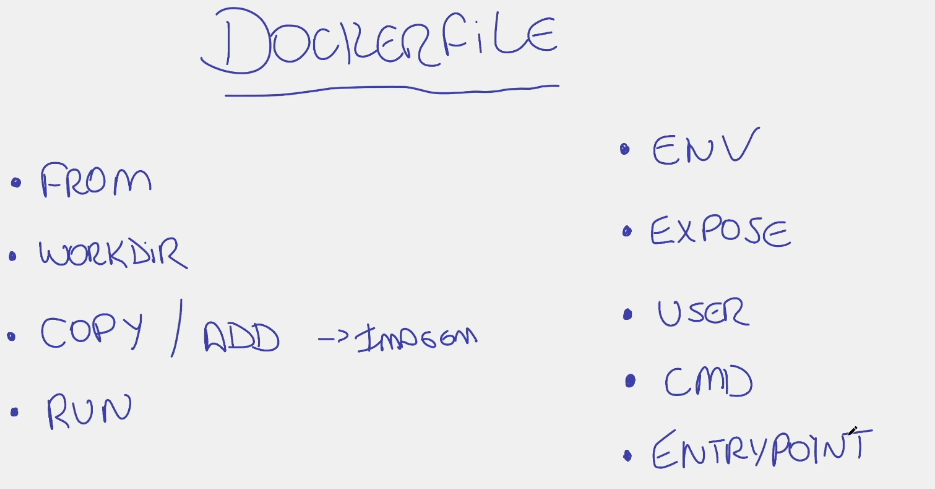 DOCKERFiLE
• FROM
• WORKDiR
• COPY / ADD -> IMAGEM
• RUN
• ENV
• EXPOSE
• USER
• CMD
• ENTRYPOINT